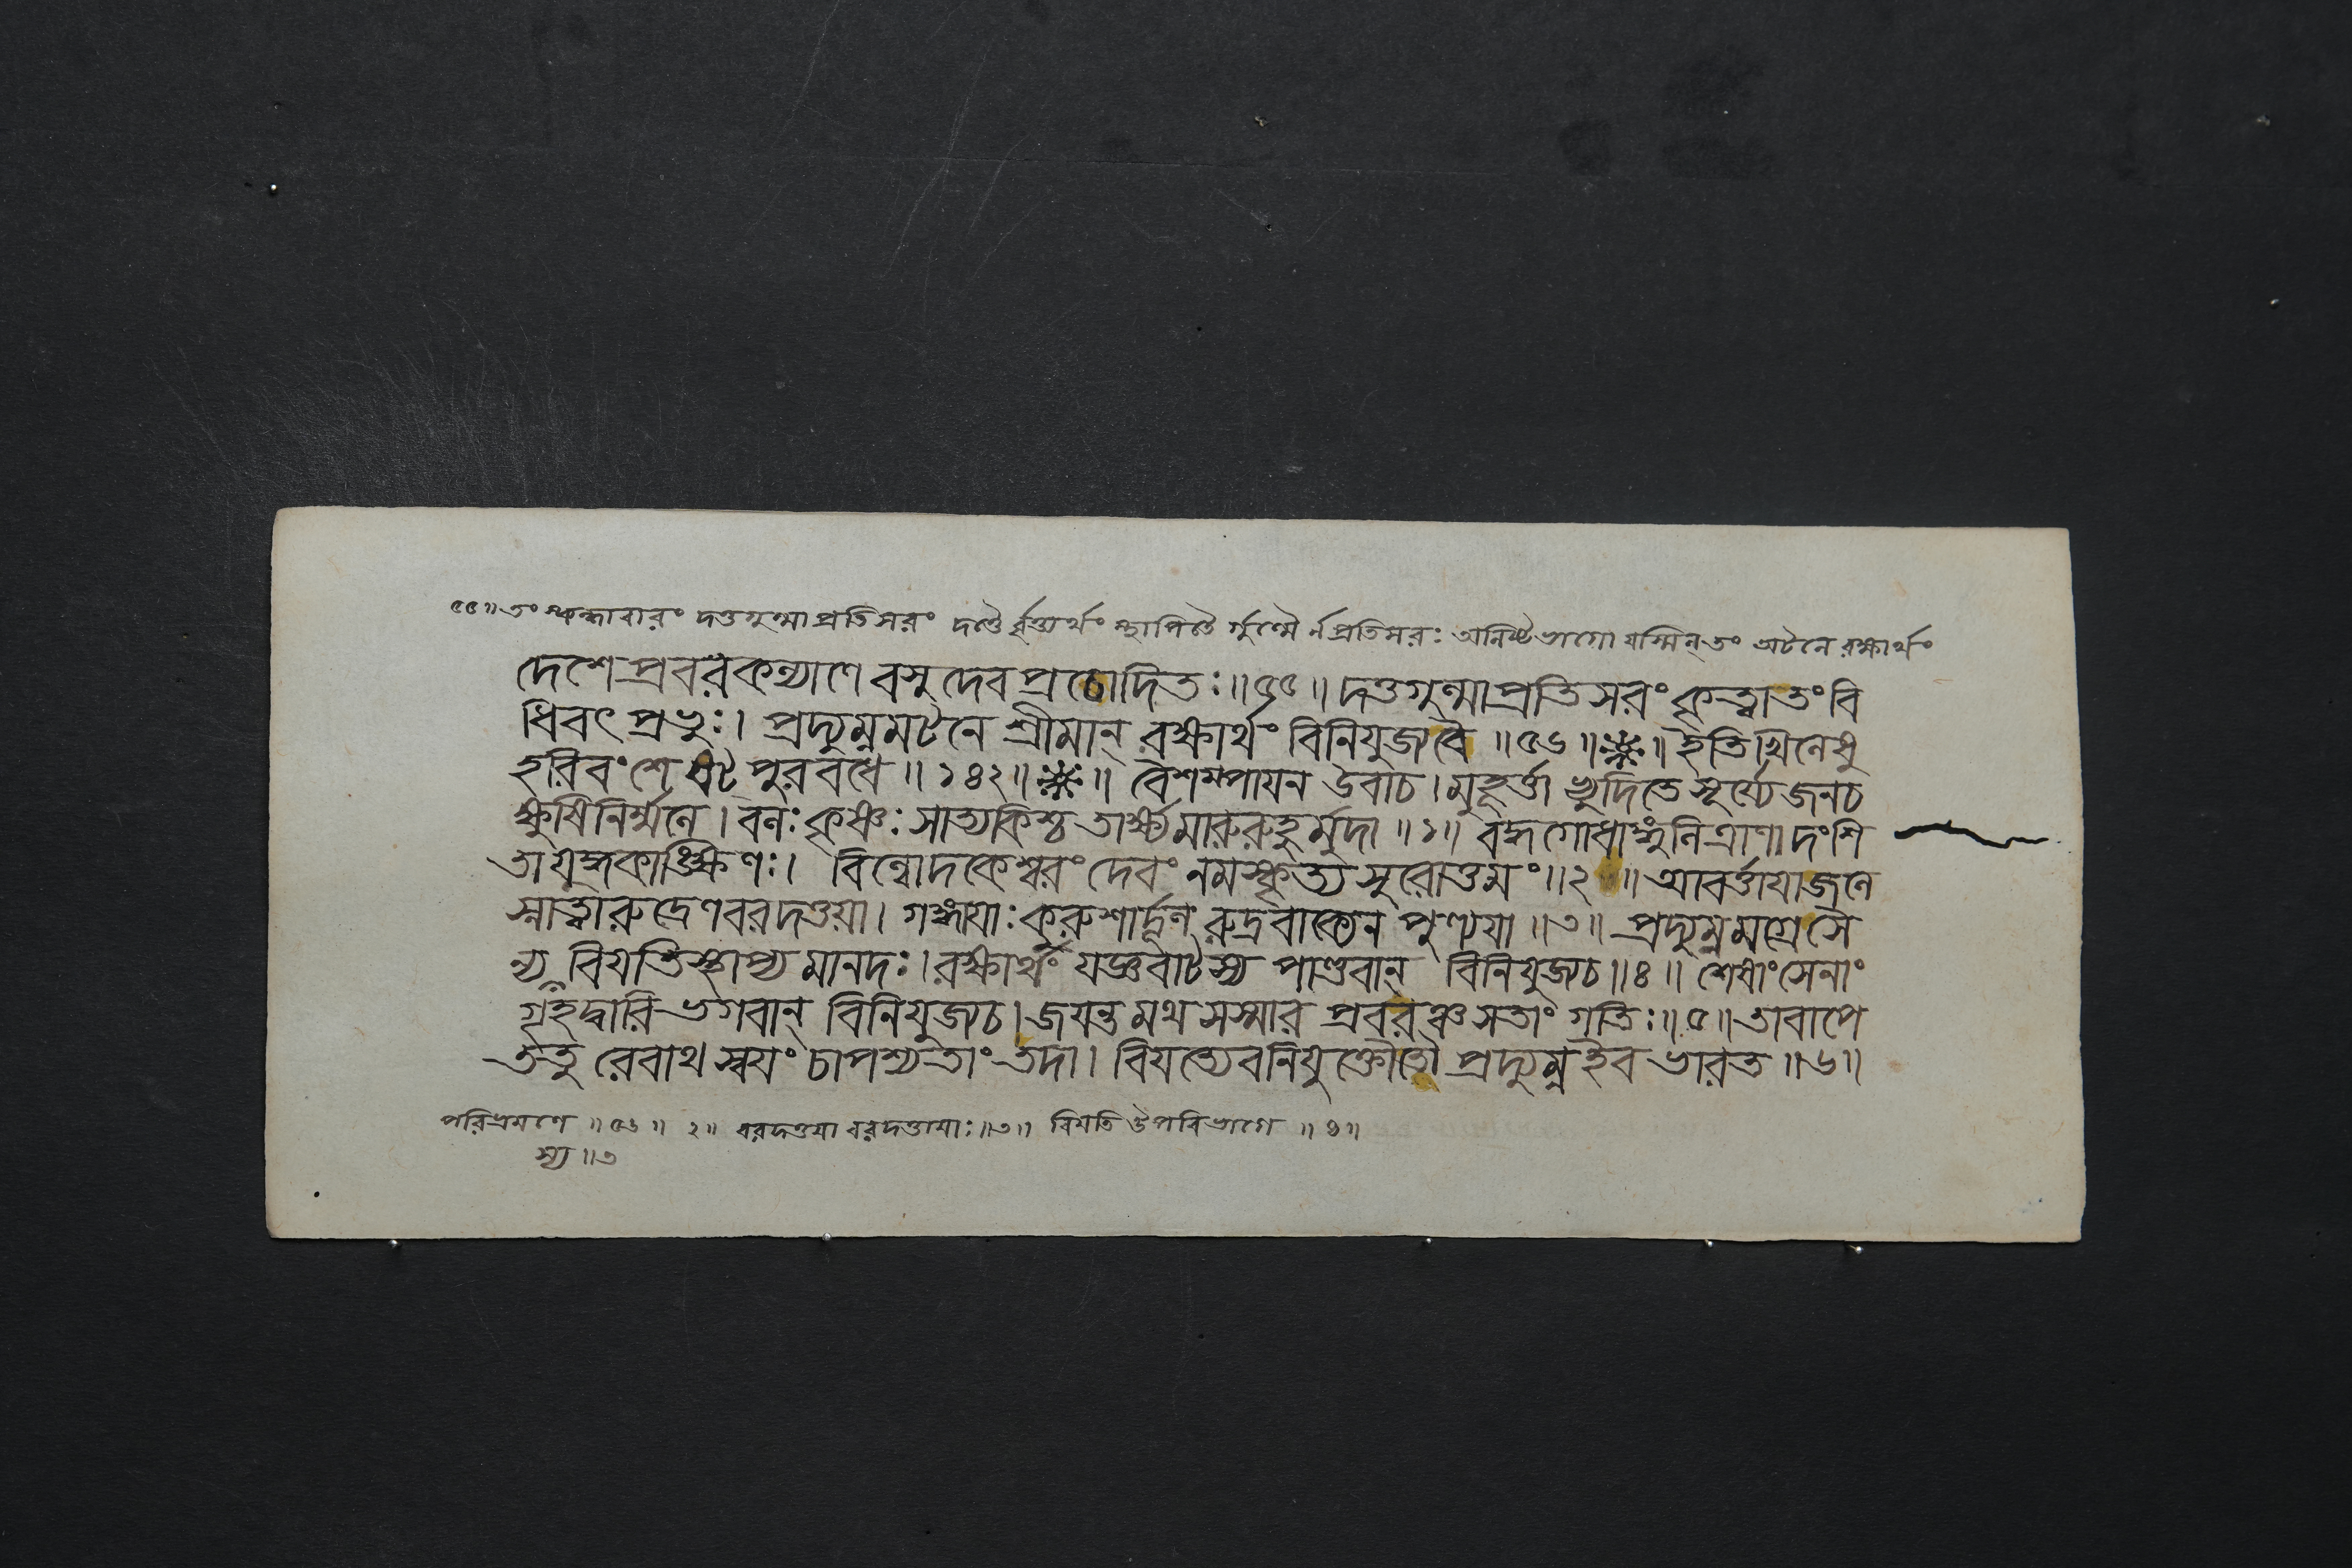 ৫৫॥ তং স্কন্ধাবারং দত্তগুল্মাপ্রতিসরং দণ্ডৈ র্বৃত্ত্যর্থং স্থাপিতৈ র্গুল্মৈ র্নপ্রতিসরঃ অনিষ্টভাগো যস্মিন্ তং অটনে রক্ষার্থং
দেশে প্রবরকল্যাণে বসুদেব প্রচোদিতঃ॥৫৫॥ দত্তগুল্মাপ্রতিসরং কৃত্বা তং বি
ধিবৎ প্রভুঃ। প্রদ্যুম্নমটনে শ্রীমান্ রক্ষার্থং বিনিযুজ্য বৈ॥৫৬॥ ॥ ইতি খিলেষু
হরিবংশে ষট্পুরবধে॥১৪২॥ ॥ বৈশম্পায়ন উবাচ। মুহূর্ত্তাভ্যুদিতে সূর্য্যে জনচ
ক্ষুষি নির্ম্মলে। বলঃ কৃষ্ণঃ সাত্যকিশ্চ তার্ক্ষ্যমারুরুহুর্মুদা॥১॥ বদ্ধগোধাঙ্গুলিত্রাণা দংশি
তা যুদ্ধকাঙ্ক্ষিণঃ। বিল্বোদকেশ্বরং দেবং নমস্কৃত্য সুরোত্তমং॥২॥ আবর্ত্তায়া জলে
স্নাত্বা রুদ্রেণ বরদত্তয়া। গঙ্গায়াঃ কুরুশার্দ্দূল রুদ্রবাক্যেন পুণ্যয়া॥৩॥ প্রদ্যুম্নমগ্রে সৈ
ন্যস্য বিয়তি স্থাপ্য মানদঃ। রক্ষার্থং যজ্ঞবাটস্য পাণ্ডবান্ বিনিযুজ্য চ॥৪॥ শেষাং সেনাং
গৃহদ্বারি ভগবান্ বিনিযুজ্য চ। জয়ন্তমথ সস্মার প্রবরঞ্চ সতাং গতিঃ॥৫॥ তাবাপে
ততু রেবাথ স্বয়ং চাপশ্যতাং তদা। বিয়ত্যেব নিযুক্তৌ তৌ প্রদ্যুম্ন ইব ভারত॥৬॥
পরিভ্রমণে॥৫৬॥ ২॥ বরদত্তয়া বরদত্তায়াঃ॥৩॥ বিয়তি ঊপরিভাগে॥৪॥
স্য॥৩